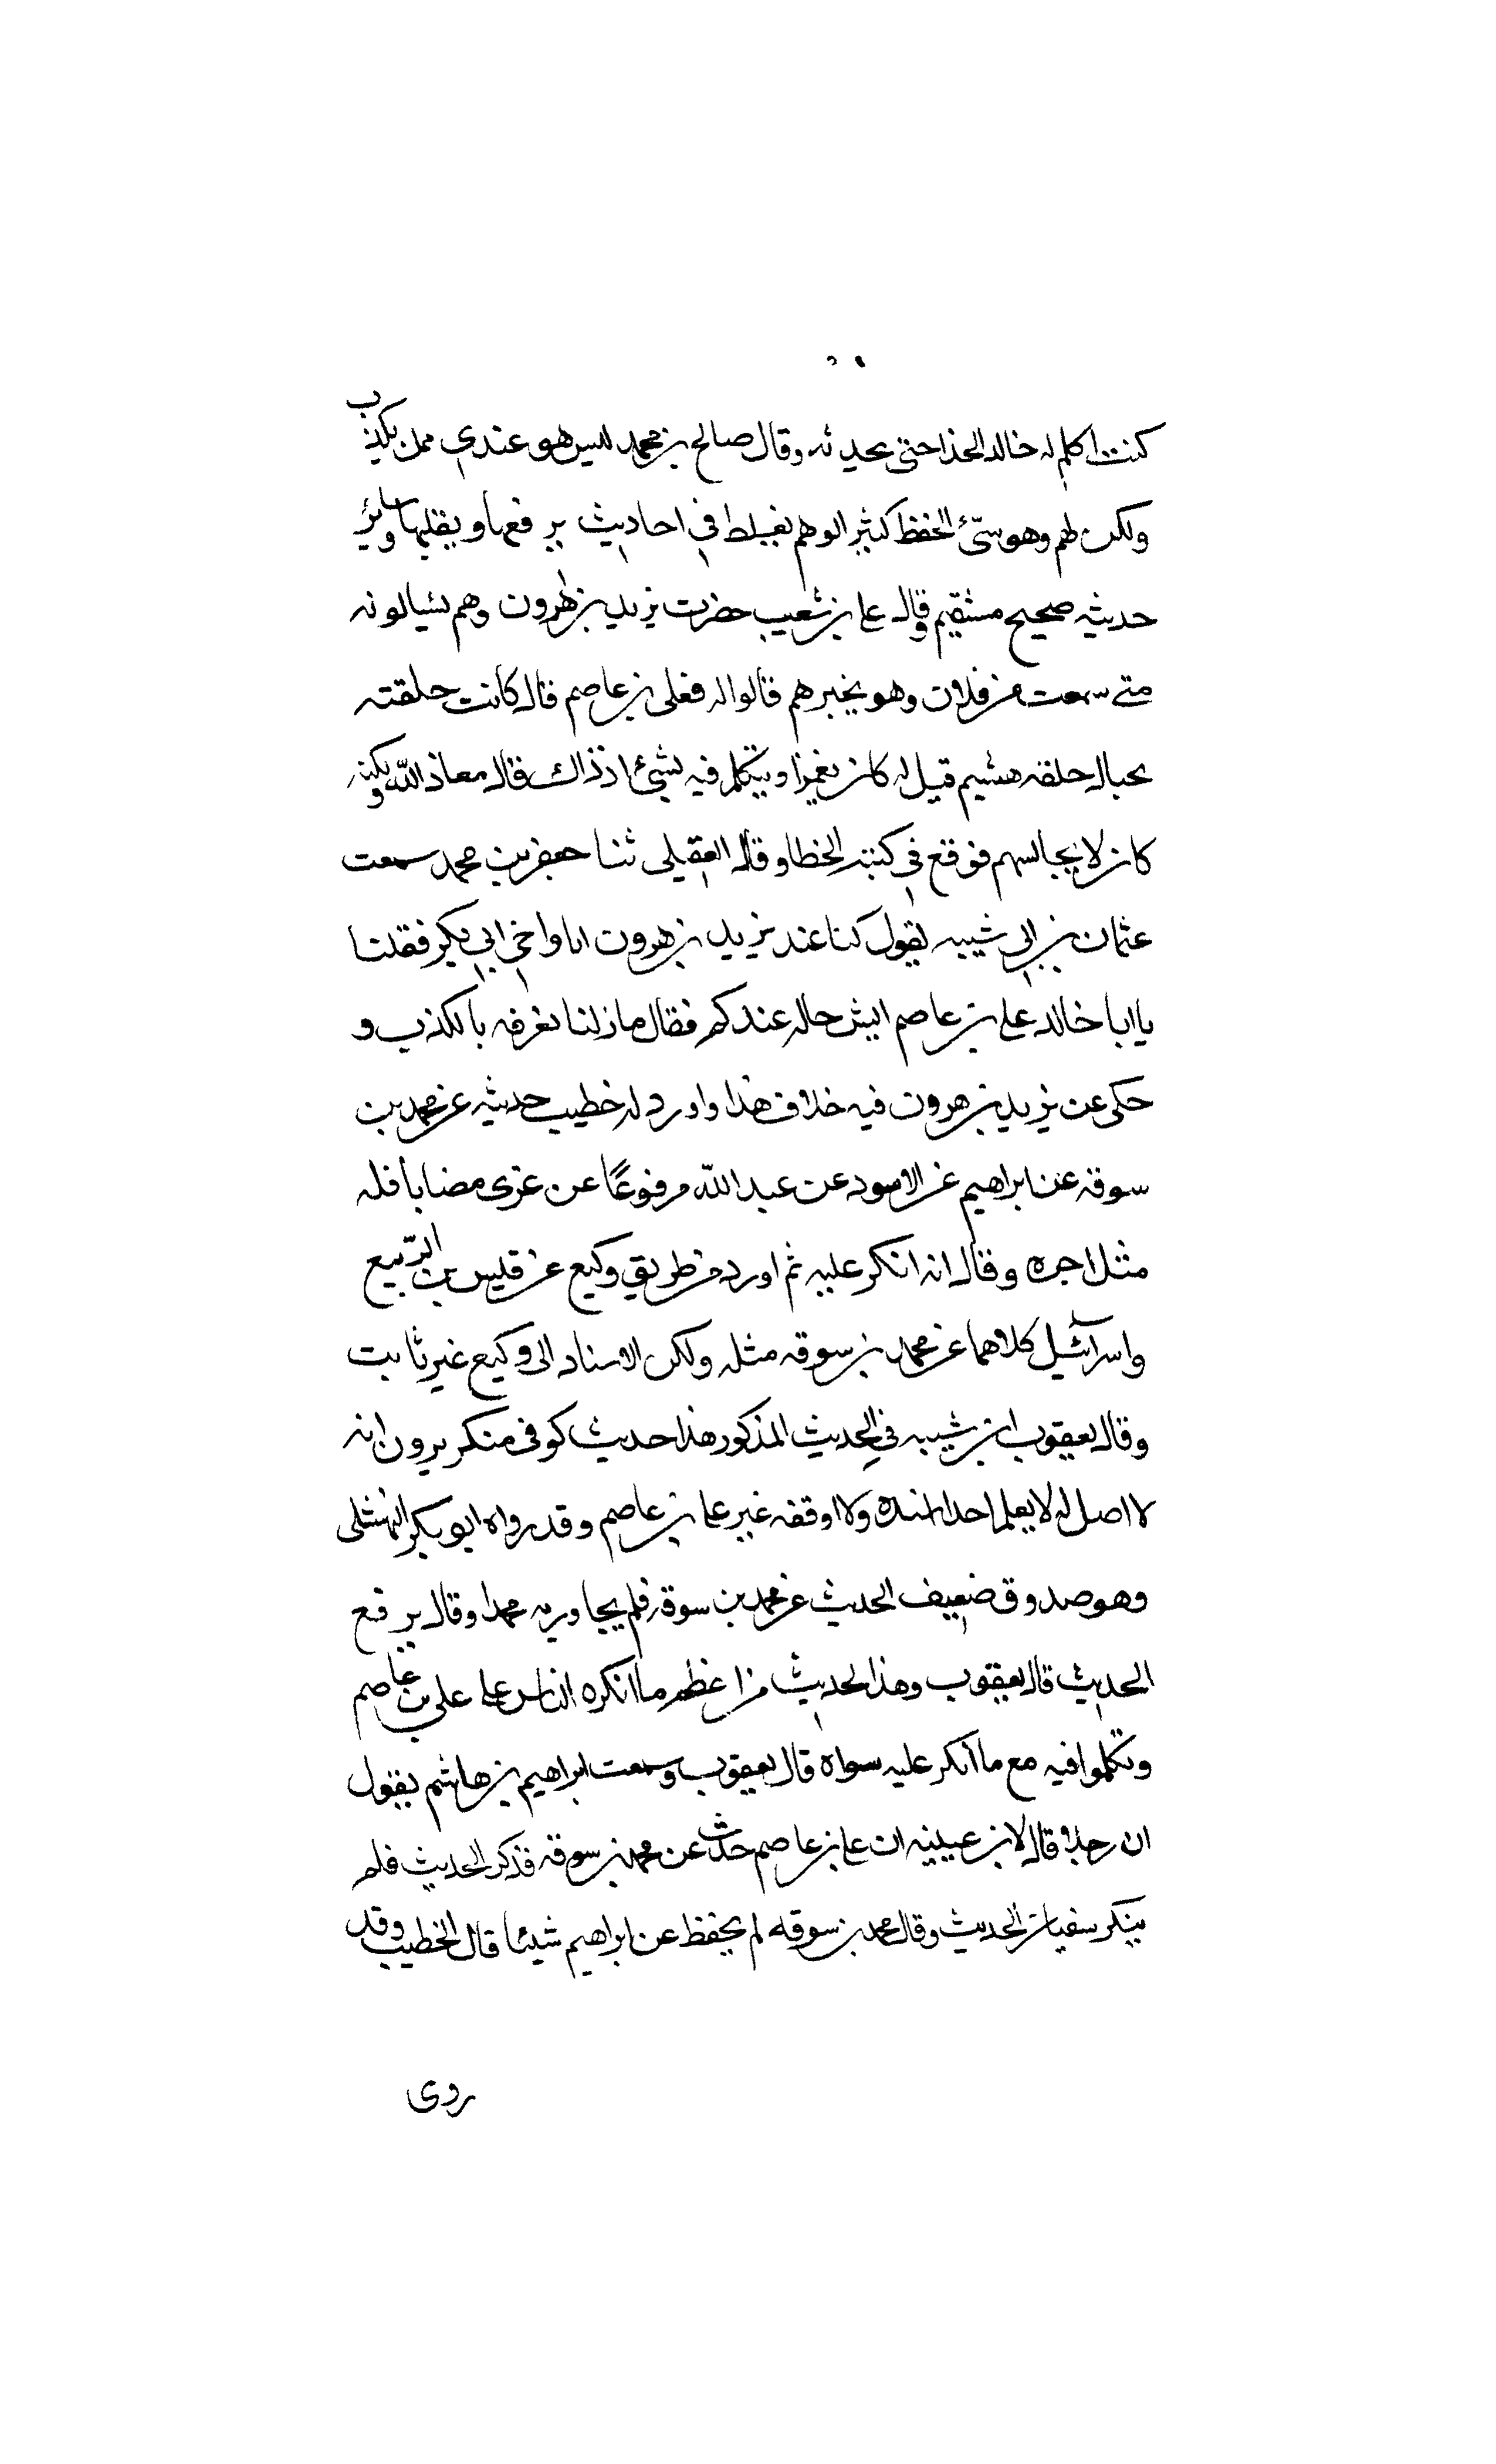 كنت اكلم له خالد الحذا حتى يحدثه وقال صالح بن محمد ليس هو عندي ممن يكذب
ولكن يهم وهو سيّئ الحفظ كثير الوهم يغلط في احاديث يرفعها ويقلبها وسائر
حديثه صحيح مستقيم وقال علي بن شعيب حضرت يزيد بن هرون وهم يسالونه
متى سمعت من فلان وهو يخبرهم قالوا له فعلى بن عاصم قال كانت حلقته
بحيال حلقة هشيم قيل له كان يغمز او يتكلم فيه بشئ اذ ذاك قال معاذ الله ولكنه
كان لا يجالسهم فوقع في كتبه الخطا وقال العقيلى ثنا جعفر بن محمد سمعت
عثمان بن ابي شيبه يقول كنا عند يزيد بن هرون انا واخي ابي بكر فقلنا
يا ابا خالد على بن عاصم ايش حاله عندكم فقال ما زلنا نعرفه بالكذب و
حكى عن يزيد بن هرون فيه خلاف هذا واورد له خطيب حديثه عن محمد بن
سوقه عن ابراهيم عن الاسود عن عبد الله مرفوعًا من عزى مصابا فله
مثل اجره وقال انه انكر عليه ثم اورد من طريق وكيع عن قيس بن الربيع
واسرآئيل كلاهما عن محمد بن سوقه مثله ولكن الاسناد الى وكيع غير ثابت
وقال يعقوب ابن شيبه في الحديث المذكور هذا حديث كوفى منكر يرون انه
لا اصل له لا يعلم احدا اسنده ولا اوقفه غير علي بن عاصم وقد رواه ابو بكر النهشلى
وهو صدوق ضعيف الحديث عن محمد بن سوقه فلم يجاوز به محمدا وقال يرفع
الحديث قال يعقوب وهذا الحديث من اعظم ما انكره الناس على علي بن عاصم
وتكلموا فيه مع ما انكر عليه سواه قال يعقوب وسمعت ابراهيم بن هاشم يقول
ان رجلا قال لابن عيينه ان علي بن عاصم حدث عن محمد بن سوقه فذكر الحديث فلم
ينكر سفيان الحديث وقال محمد بن سوقه لم يحفظ عن ابراهيم شيئا قال الخطيب وقد
روى